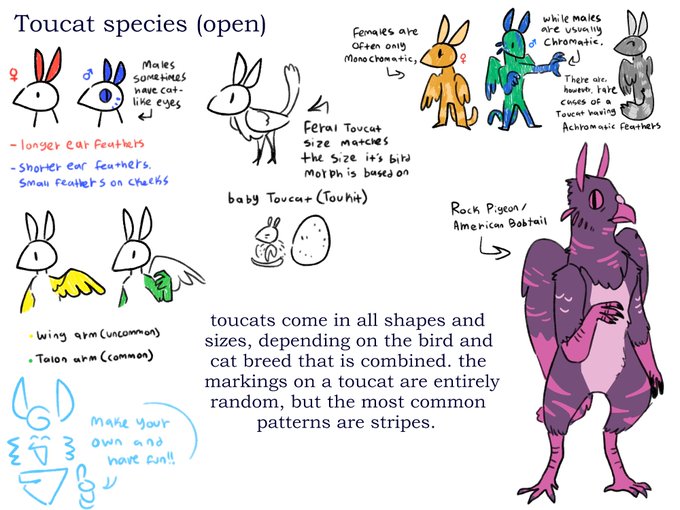 Toucat species (open)
♀
♂
Males
sometimes
have cat-
like eyes
- longer ear feathers
- shorter ear feathers.
Small feathers on cheeks
Feral Toucat
size matches
the size it's bird
morph is based on
baby Toucat (Toukit)
Females are
Often only
Monochromatic,
♀
while males
are usually
Chromatic.
♂
There are,
however, rare
cases of a
Toucat having
Achromatic feathers
Rock Pigeon/
American Bobtail
• Wing arm (uncommon)
• Talon arm (common)
toucats come in all shapes and
sizes, depending on the bird and
cat breed that is combined. the
markings on a toucat are entirely
random, but the most common
patterns are stripes.
Make your
own and
have fun!!